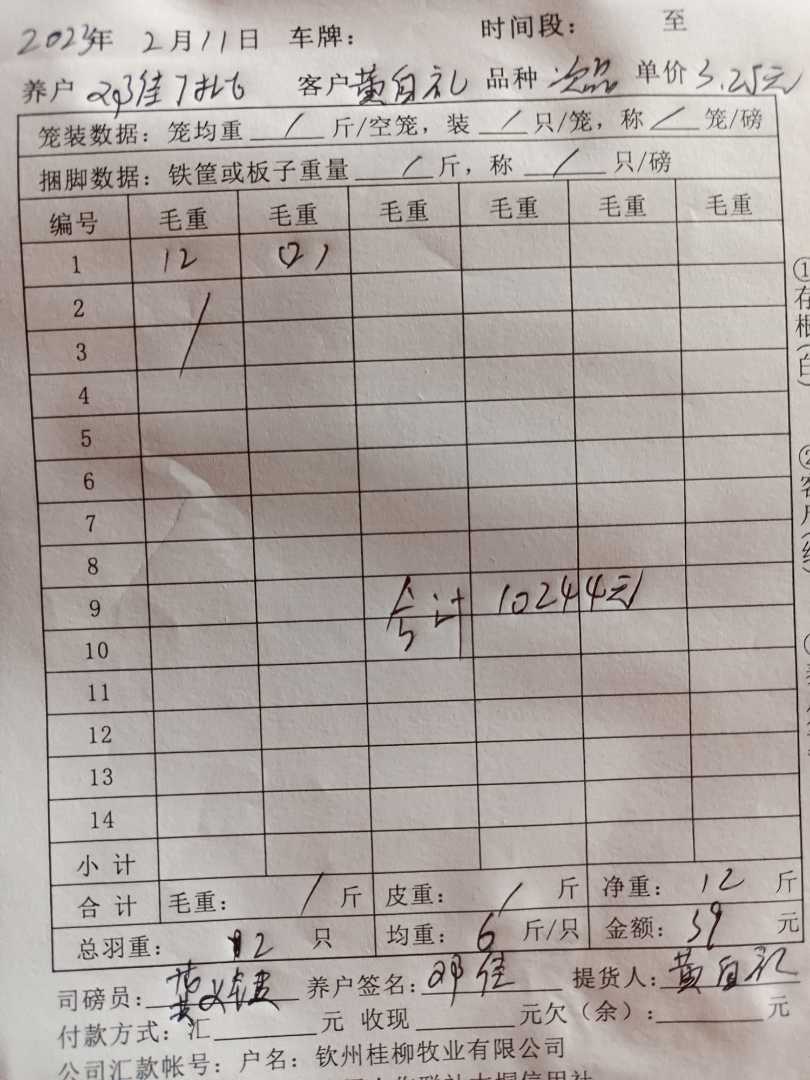 2023年 2月11日 车牌： 时间段： 至
养户 邓佳 客户 黄自礼 品种 次品 单价 3.25元
笼装数据：笼均重 / 斤/空笼，装 / 只/笼，称 / 笼/磅
捆脚数据：铁筐或板子重量 / 斤，称 / 只/磅
编号 毛重 毛重 毛重 毛重 毛重 毛重
1 12
2 /
3
4
5
6
7
8
9 合计 10244元
10
11
12
13
14
小计
合计 毛重： / 斤 皮重： / 斤 净重： 12 斤
总羽重： 2 只 均重： 6 斤/只 金额： 39 元
司磅员： 养户签名： 邓佳 提货人： 黄自礼
付款方式：汇 元 收现 元欠（余）： 元
公司汇款帐号：户名：钦州桂柳牧业有限公司
①存根(白)
②客户(红)